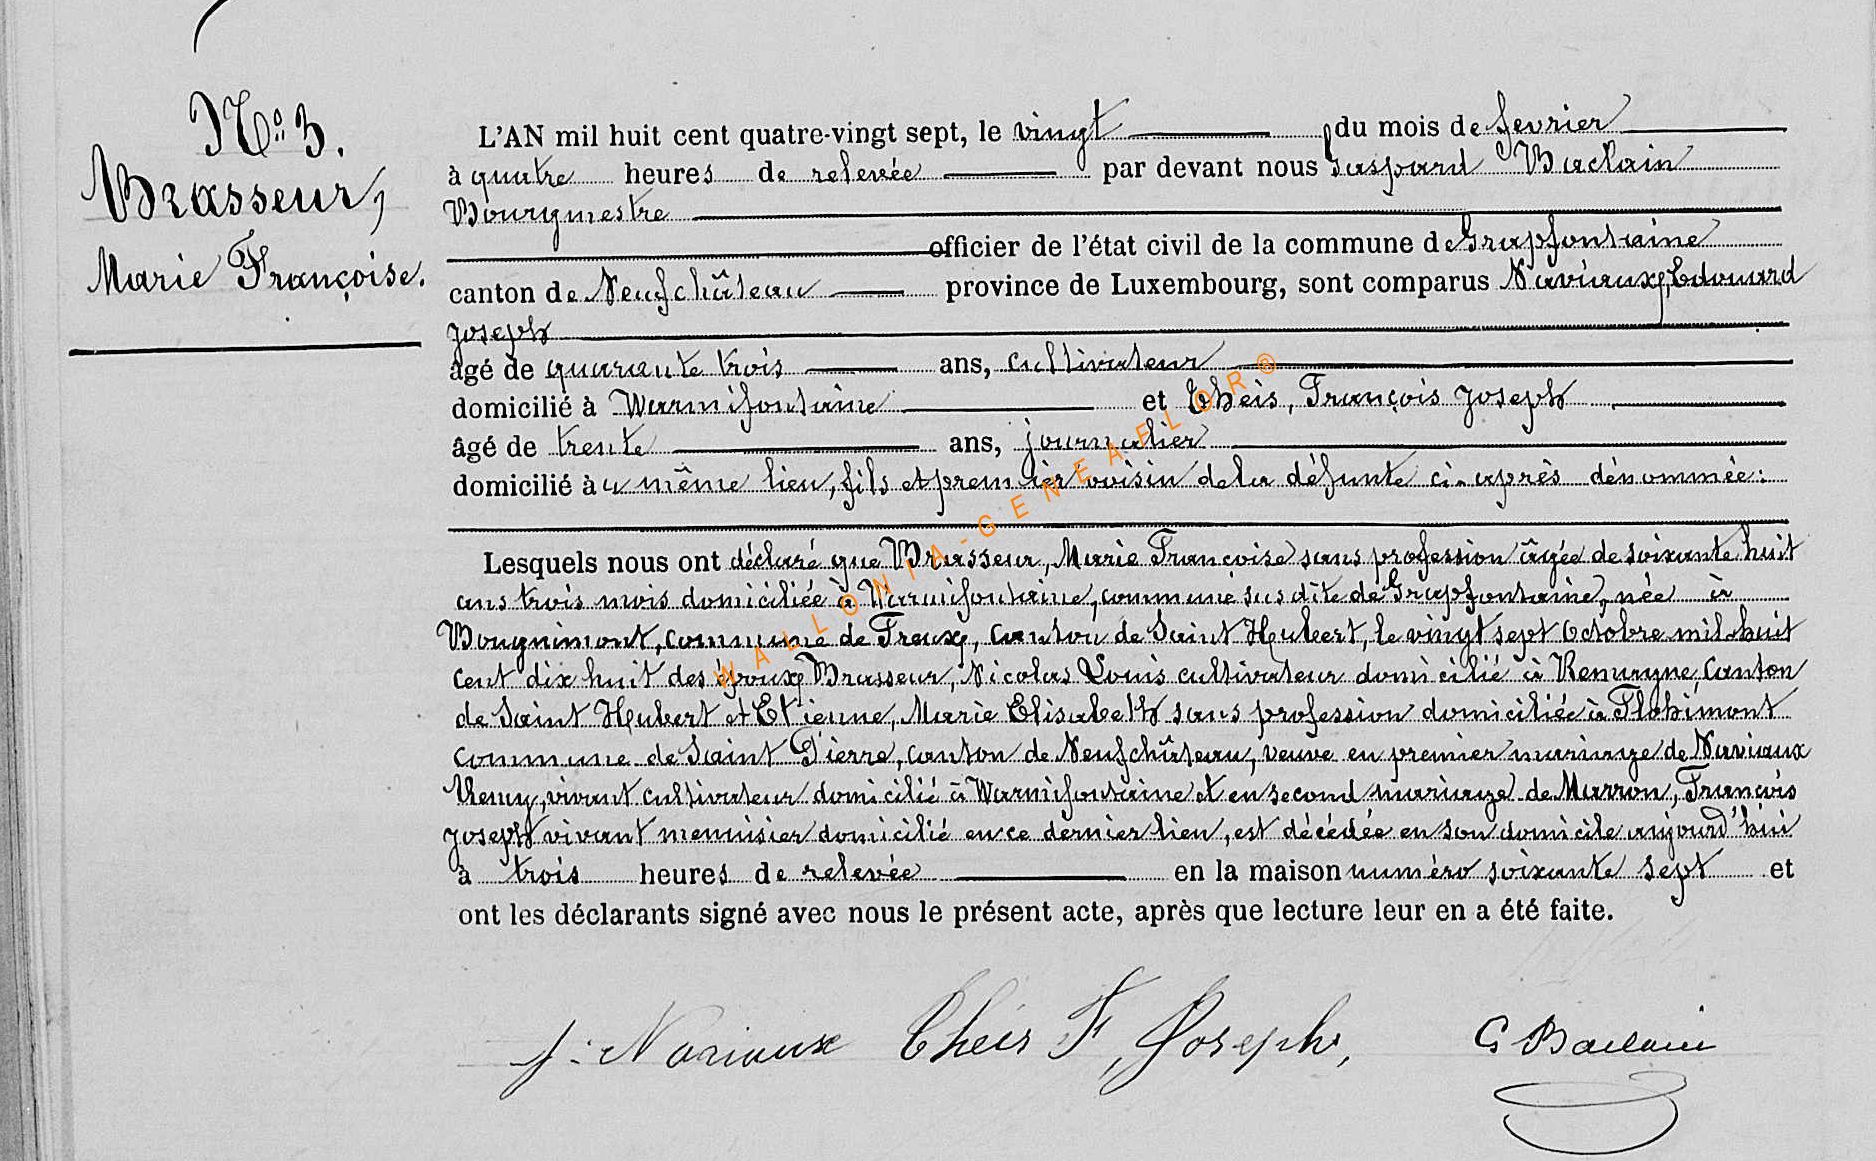 N.° 3.
Brasseur,
Marie Françoise.
L'AN mil huit cent quatre-vingt sept, le vingt du mois de fevrier
à quatre heures de relevée par devant nous Gaspard Baclain
Bourgmestre
officier de l'état civil de la commune de Grapfontaine
canton de Neufchâteau province de Luxembourg, sont comparus Naviaux, Edouard
joseph
âgé de quarante trois ans, cultivateur
domicilié à Warmifontaine et Theis, François joseph
âgé de trente ans, journalier
domicilié au même lieu, fils et premier voisin de la défunte ci-après dénommée:
Lesquels nous ont déclaré que Brasseur, Marie Françoise sans profession âgée de soixante huit
ans trois mois domiciliée à Warmifontaine, commune susdite de Grapfontaine, née à
Bougnimont, commune de Freux, canton de Saint Hubert, le vingt sept Octobre mil huit
cent dix huit des époux Brasseur, Nicolas Louis cultivateur domicilié à Remagne, Canton
de Saint Hubert et Etienne, Marie Elisabeth sans profession domiciliée à Flohimont
commune de Saint Pierre, canton de Neufchâteau, veuve en premier mariage de Naviaux
Remy, vivant cultivateur domicilié à Warmifontaine et en second mariage de Marron, François
joseph vivant menuisier domicilié en ce dernier lieu, est décédée en son domicile aujourd'hui
à trois heures de relevée en la maison numéro soixante sept et
ont les déclarants signé avec nous le présent acte, après que lecture leur en a été faite.
J. Naviaux Theis F, Joseph, G Baclain
WALLONIA-GENEAFLOR®